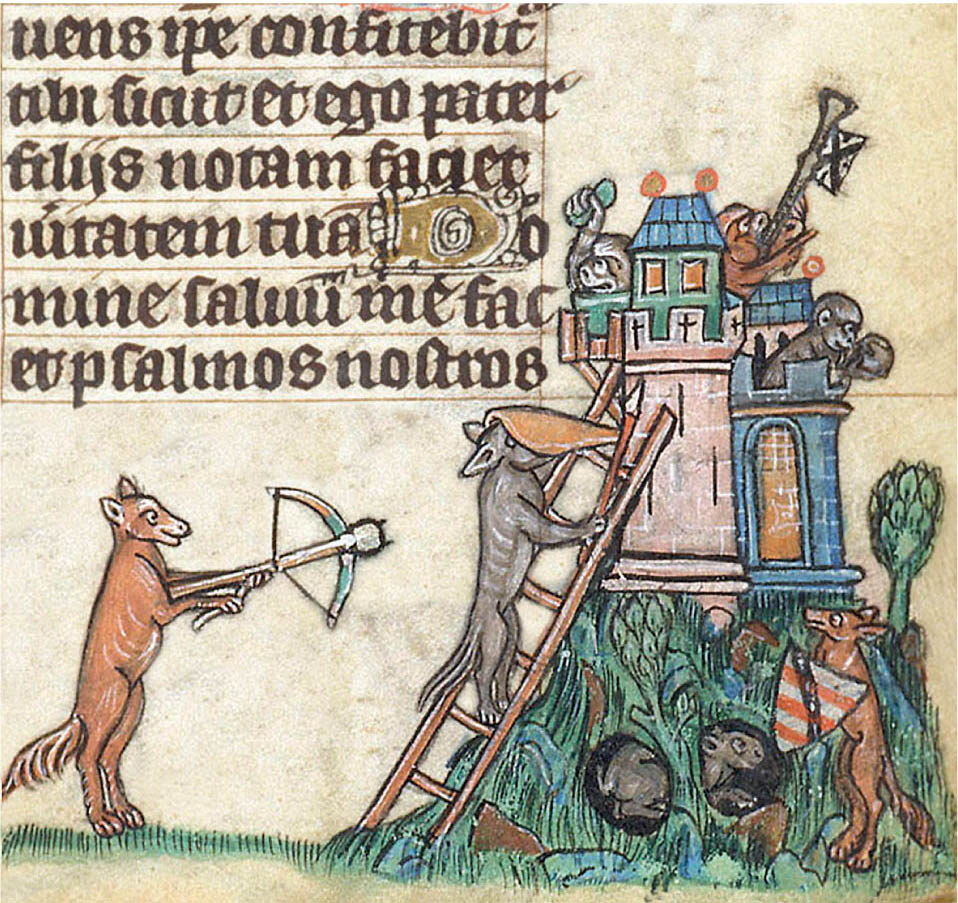 uens ipe confitebit̄
tibi sicut et ego pater
filijs notam faciet
uitatem tua Do
mine saluū mē fac
et psalmos nostros